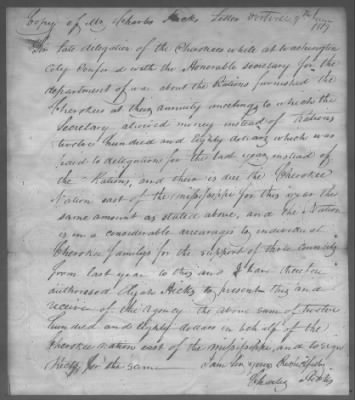 Copy of Mr Charles Hicks Letter Fortville 9th June 1819
The late delegation of the Cherokees while at Washington
City Confered with the Honorable secretary for the
department of war about the Rations furnished the
Cherokees at their annuity meetings to which the
Secretary allowed money instead of Rations
twelve hundred and Eighty dollars which was
paid to delegations for the last year instead of
the Rations, and there is due the Cherokee
Nation east of the missisippi for this year the
same amount as stated above, and the Nation
is in a considerable arrearages to individual
Cherokee families for the support of those Councils
from last year to this and I have therefore
authorised Elijah Hicks to present this and
receive of the agency the above sum of twelve
hundred and Eighty dollars in behalf of the
Cherokee nation east of the missisippi, and to sign
Rects for the same I am Sir yours Respectfully
Charles Hicks